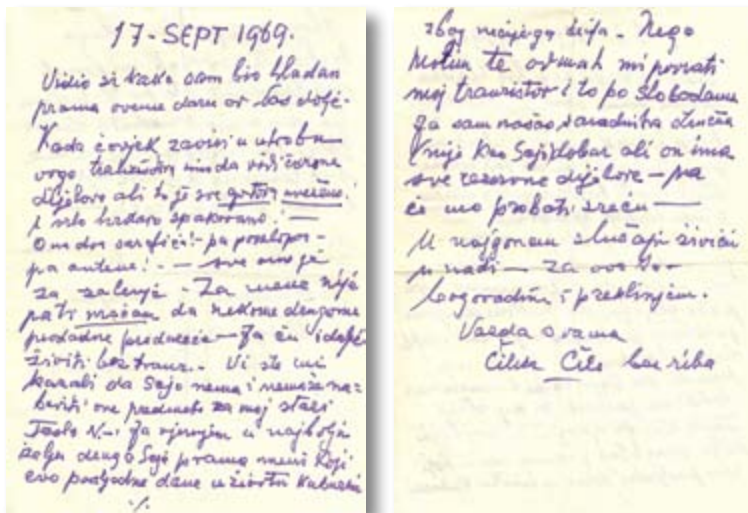 17. SEPT 1969.
Vidio si kako sam bio hladan
prama ovome daru od Vas dolje.
Kada čovjek zaviri u utrobu
ovog tranzistor mora da vidi čarone
dijelove ali to je sve
i vrlo hrđavo spakovano! —
On dva
pa antene! — — sve ono je
za žaljenje - Za mene nije
pati da nekome drugome
predadne — Ja ću i dalje
živiti bez tranz.. Vi ste mi
kazali da Sajo nema i nemože na=
baviti ove predmete za moj stari
ja vjerujem u najbolju
želju druga Saje prama meni koji
evo posljedne dane u životu
./.
zbog nečijega ćeifa - Nego
Molim te odmah mi povrati
moj tranzistor i to po Slobodanu
Ja sam našao saradnika
(nije kao Sajo dobar ali on ima
sve rezervne dijelove — pa
će mo probati sreću —
U najgorem slučaju živići
u nadi — Za ovo te
bogoradim i preklinjem.
Vazda s vama
Čiček Čilo bez riba